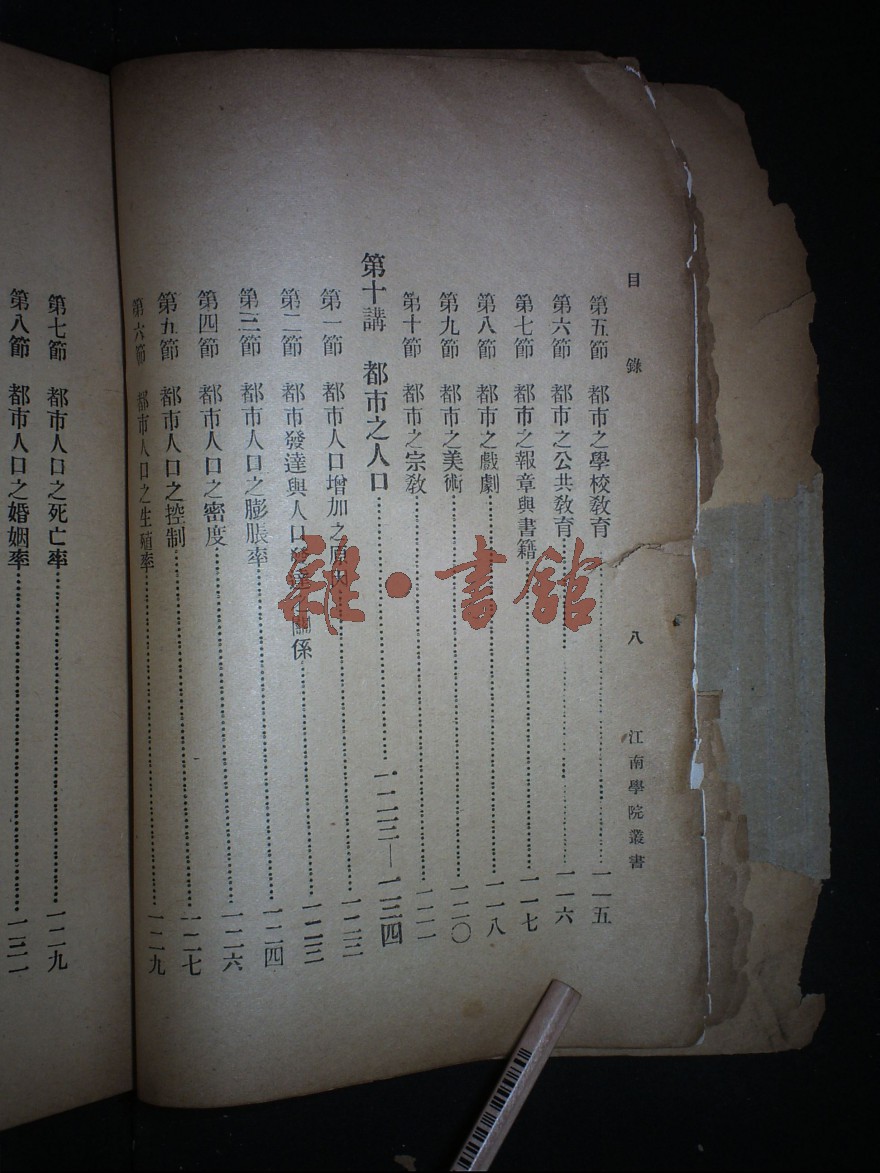 目錄 八 江南學院叢書
第五節 都市之學校教育……一一五
第六節 都市之公共教育……一一六
第七節 都市之報章與書籍……一一七
第八節 都市之戲劇……一一八
第九節 都市之美術……一二〇
第十節 都市之宗教……一二一
第十講 都市之人口……一二三—一三四
第一節 都市人口增加之原因……一二三
第二節 都市發達與人口發達之關係……一二三
第三節 都市人口之膨脹率……一二四
第四節 都市人口之密度……一二六
第五節 都市人口之控制……一二七
第六節 都市人口之生殖率……一二九
第七節 都市人口之死亡率……一二九
第八節 都市人口之婚姻率……一三一
雜·書館